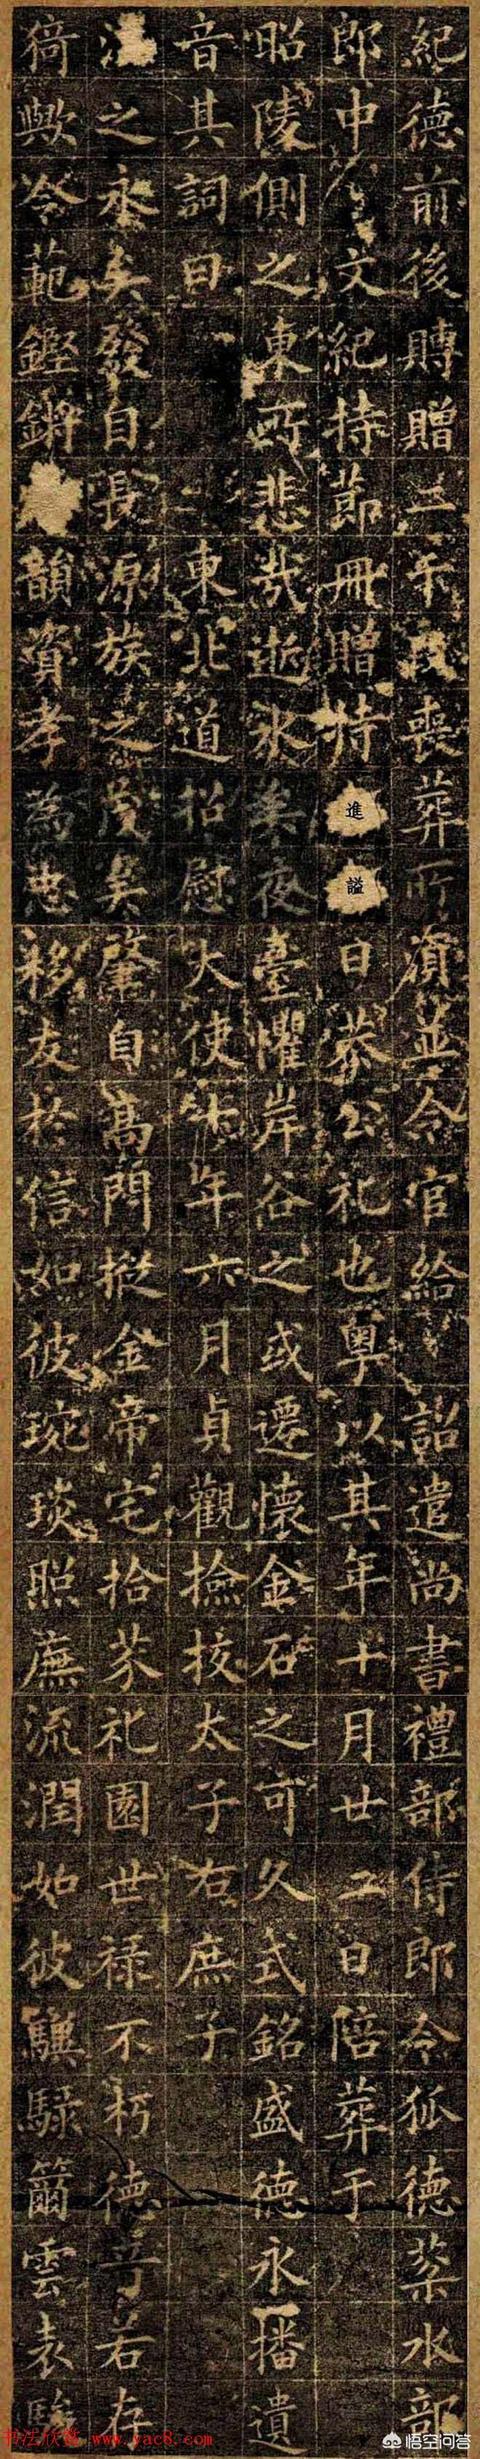 紀德前後賻贈二千段喪葬所湏並令官給詔遣尚書禮部侍郎令狐德棻水部
郎中文紀持節冊贈特進謚曰恭公礼也粤以其年十月廿二日陪葬于
昭陵側之東所悲哉逝水矣夜臺懼岸谷之或遷懷金石之可久式銘盛德永播遺
音其詞曰二東北道招慰大使十年六月貞觀撿挍太子右庶子
之永矣發自長源族之茂矣肇自高門摐金帝宅拾芥礼園世禄不朽德音若存
猗歟令範鏗鏘韻資孝為忠移友於信如彼琬琰照廡流潤如彼騏騄籋雲表駿
书法欣赏 www.yac8.com
悟空问答